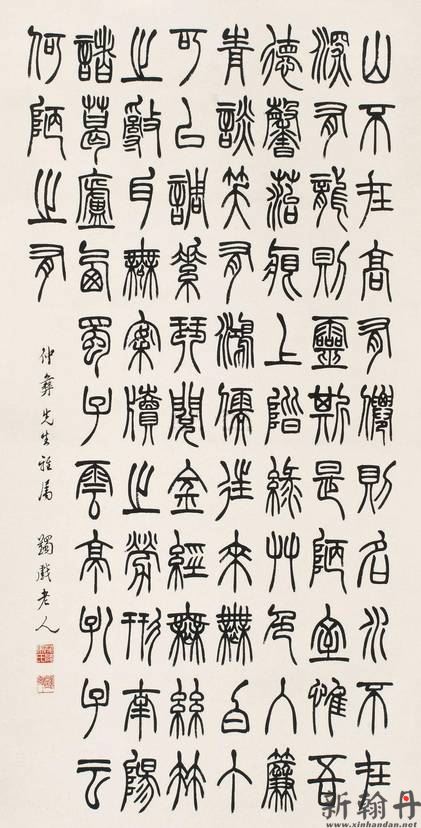 山不在高有僊則名水不在
深有龍則靈斯是陋室惟吾
德馨苔痕上階綠艸色入簾
青談笑有鴻儒往來無白丁
可以調素琴閱金經無絲竹
之亂耳無案牘之勞形南陽
諸葛廬西蜀子雲亭孔子云
何陋之有
仲彝先生雅属 蠲戲老人
新翰丹
www.xinhandan.net